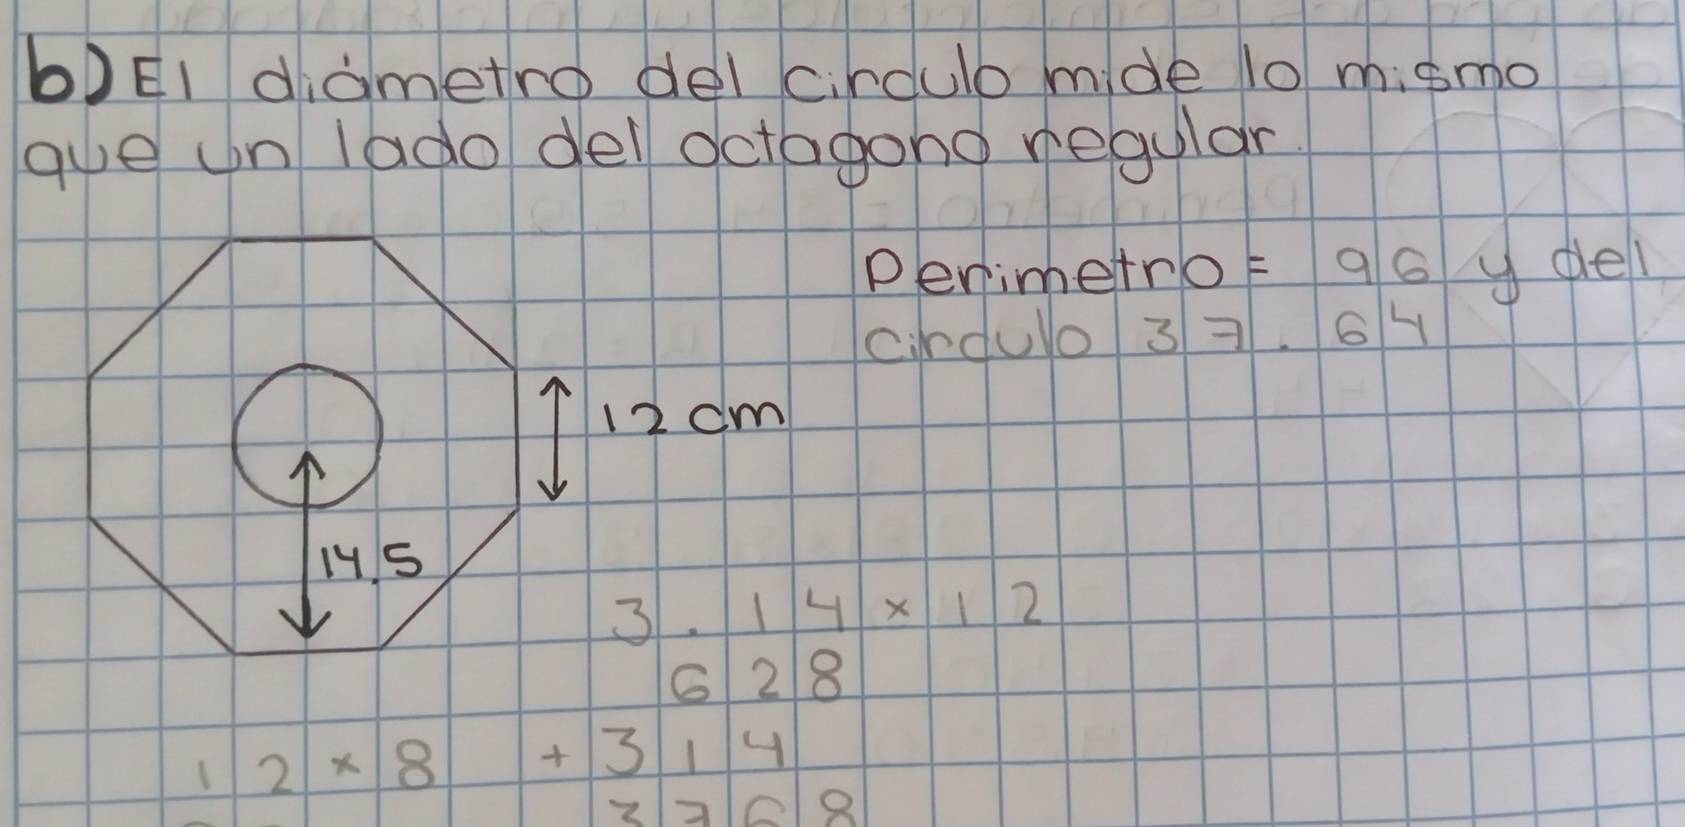 b) El diámetro del circulo mide lo mismo
que un lado del octagono regular.
Perimetro = 96 y del
circulo 37.64
12 cm
14.5
3.14 x 12
628
12 x 8 + 314
3768